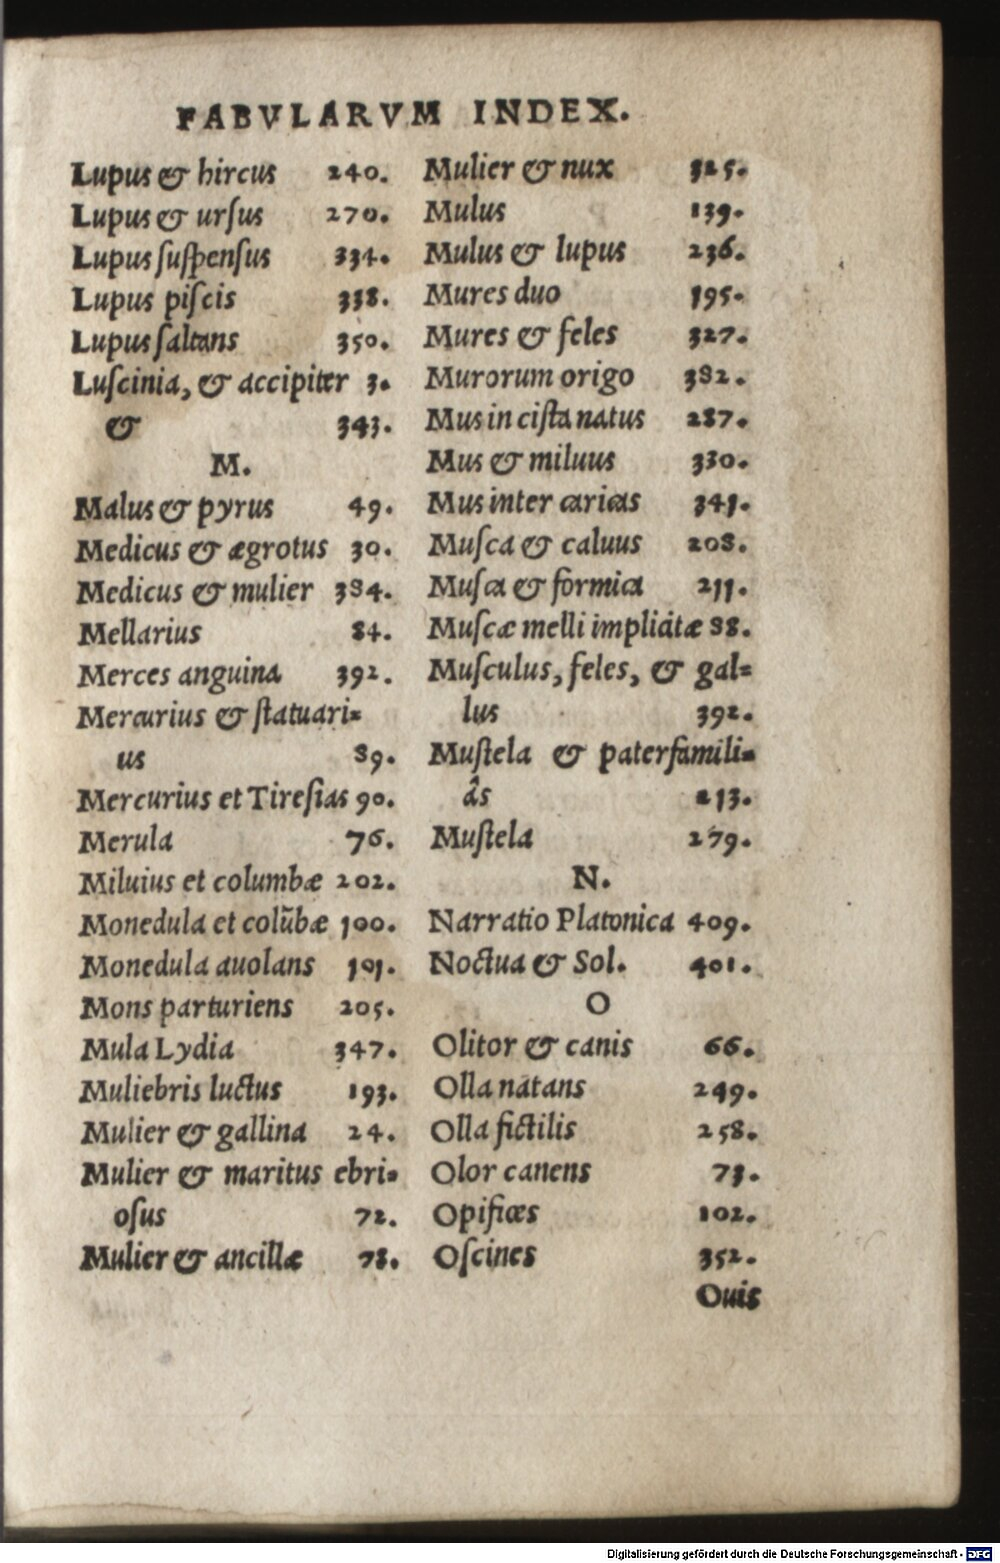 FABVLARVM INDEX.
Lupus & hircus 240.
Lupus & urſus 270.
Lupus ſuſpenſus 334.
Lupus piſcis 338.
Lupus ſaltans 350.
Luſcinia, & accipiter 3.
& 343.
M.
Malus & pyrus 49.
Medicus & ægrotus 30.
Medicus & mulier 384.
Mellarius 84.
Merces anguina 392.
Mercurius & ſtatuari=
us 89.
Mercurius et Tireſias 90.
Merula 76.
Miluius et columbæ 202.
Monedula et colūbæ 100.
Monedula auolans 101.
Mons parturiens 205.
Mula Lydia 347.
Muliebris luctus 193.
Mulier & gallina 24.
Mulier & maritus ebri=
oſus 72.
Mulier & ancillæ 78.
Mulier & nux 325.
Mulus 139.
Mulus & lupus 236.
Mures duo 195.
Mures & feles 327.
Murorum origo 382.
Mus in ciſta natus 287.
Mus & miluus 330.
Mus inter caricas 341.
Muſca & caluus 208.
Muſca & formica 211.
Muſcæ melli implicitæ 88.
Muſculus, feles, & gal=
lus 392.
Muſtela & paterfamili=
âs 213.
Muſtela 279.
N.
Narratio Platonica 409.
Noctua & Sol. 401.
O
Olitor & canis 66.
Olla natans 249.
Olla fictilis 258.
Olor canens 71.
Opifices 102.
Oſcines 352.
Ouis
Digitalisierung gefördert durch die Deutsche Forschungsgemeinschaft - DFG